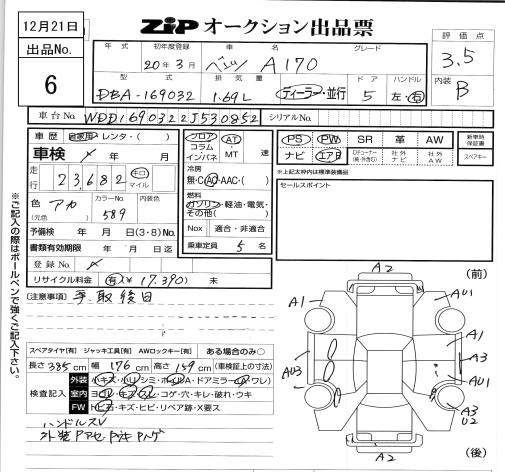 12月21日
ZIP オークション出品票
出品No. 6
年式 初年度登録 車名 グレード
20年3月 ベンツ A170
評価点 3.5
型式 排気量 ドア ハンドル
DBA-169032 1.69L ディーラー・並行 5 左・右
内装 B
車台No. WDD1690322J530852 シリアルNo.
車歴 自家用・レンタ・( )
車検 年 月
走行 23,682 キロ マイル
色 アカ (元色) カラーNo. 589 内装色
予備検 年 月 日(3・8)No.
書類有効期限 年 月 日迄
登録No.
リサイクル料金 有(¥17,390) 未
フロア コラム インパネ AT・MT 速
冷房
無・C・AC・AAC・( )
燃料
ガソリン・軽油・電気・その他( )
Nox 適合・非適合
乗車定員 5 名
PS PW SR 革 AW
ナビ エアB Dチューナー(純・外含む) 社外ナビ 社外AW
新車時保証書
スペアキー
*上記太枠内は標準装備品
セールスポイント
※ご記入の際はボールペンで強くご記入下さい。
(注意事項)
スペアタイヤ[有] ジャッキ工具[有] AWロックキー[有] ある場合のみ○
長さ385cm 幅176cm 高さ159cm (車検証上の寸法)
検査記入
外装 小キズ・小リシミ・ホイルA・ドアミラー(ワレ)
室内 ヨゴレ・キズ・スレ・コゲ・穴・キレ・破れ・ウキ
FW トビ石・キズ・ヒビ・リペア跡・X要ス
ハンドルスレ
(前)
A2
A1 AU1
A1
A3
AU3 AU1
A3
U2
A2
(後)